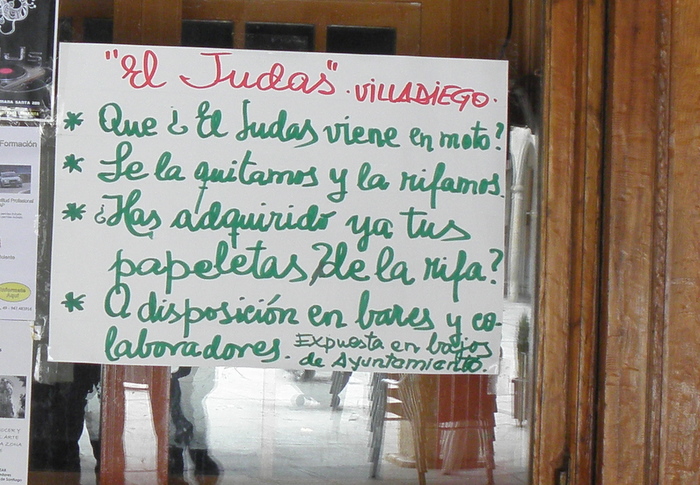 "El Judas" . VILLADIEGO.
* Que ¿ El Judas viene en moto?
* Se la quitamos y la rifamos.
* ¿Has adquirido ya tus
papeletas ? de la rifa?
* A disposición en bares y co-
laboradores. Expuesta en bajos
de Ayuntamiento.
Formación